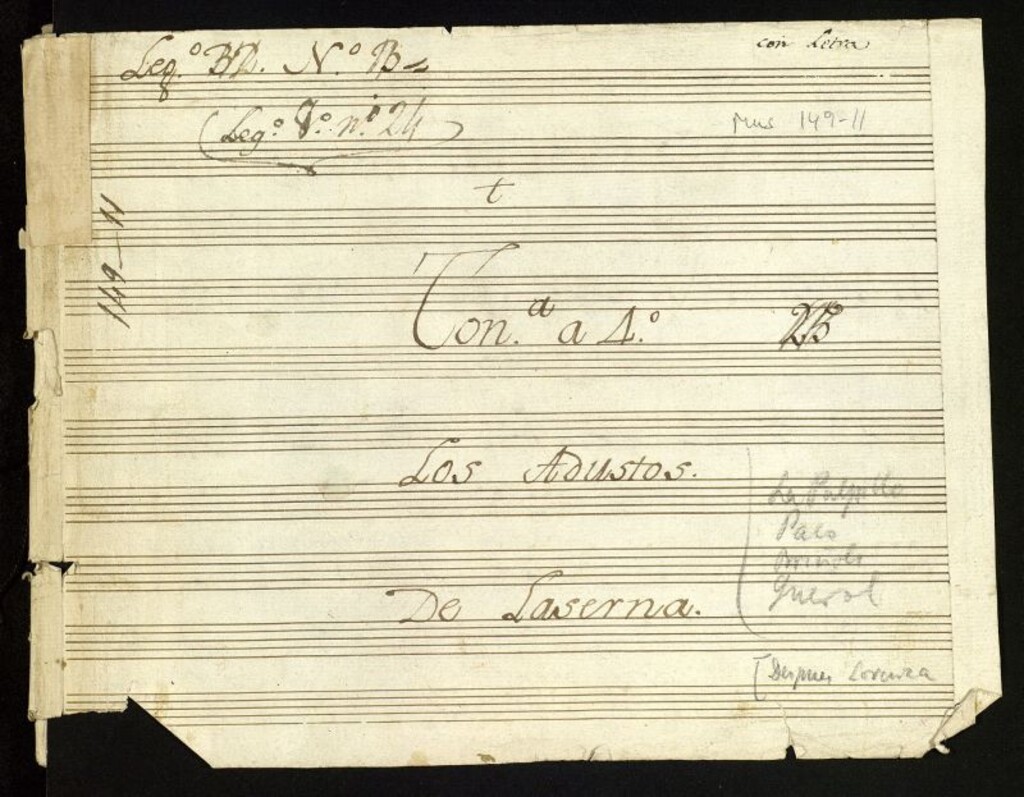 con Letra
Leg.º N.º
(Leg.º 8.º n.º 24)
Mus 149-11
t
149-11
Ton.ª a 4.º
Los Adustos.
De Laserna.
La Pulpillo
Paco
Querol
[Despues Lorenza